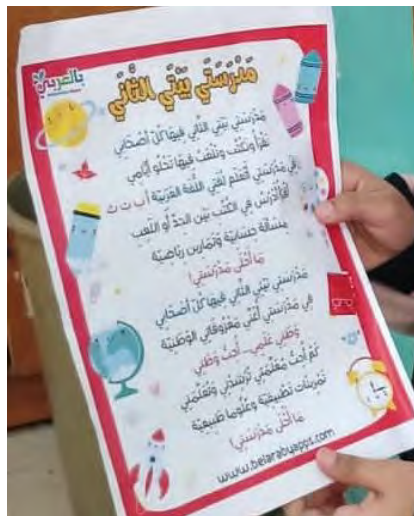 بالعربي
مَدْرَسَتِي بَيْتِي الثَّانِي
مَدْرَسَتِي بَيْتِي الثَّانِي فِيهَا كُلُّ أَصْحَابِي
نَقْرَأُ وَنَكْتُبُ وَنَلْعَبُ فِيهَا تَحْلُو أَيَّامِي
فِي مَدْرَسَتِي أَتَعَلَّمُ لُغَتِي اللُّغَةَ العَرَبِيَّةَ أ ب ت ث
أَدْرُسُ فِي الكُتُبِ بَيْنَ الجِدِّ أَو اللَّعِبِ
مَسْأَلَة حِسَابِيَّة وَتَمَارِين رِيَاضِيَّة
مَا أَحْلَى مَدْرَسَتِي!
مَدْرَسَتِي بَيْتِي الثَّانِي فِيهَا كُلُّ أَصْحَابِي
فِي مَدْرَسَتِي أُغَنِّي مَعْزُوفَاتِي الوَطَنِيَّة
وَطَنِي عَلَمِي... أُحِبُّ وَطَنِي
كَمْ أُحِبُّ مُعَلِّمَتِي تُرْشِدُنِي وَتُعَلِّمُنِي
تَمْرِينَات تَطْبِيقِيَّة وَعُلُومًا طَبِيعِيَّة
مَا أَحْلَى مَدْرَسَتِي!
www.belarabyapps.com